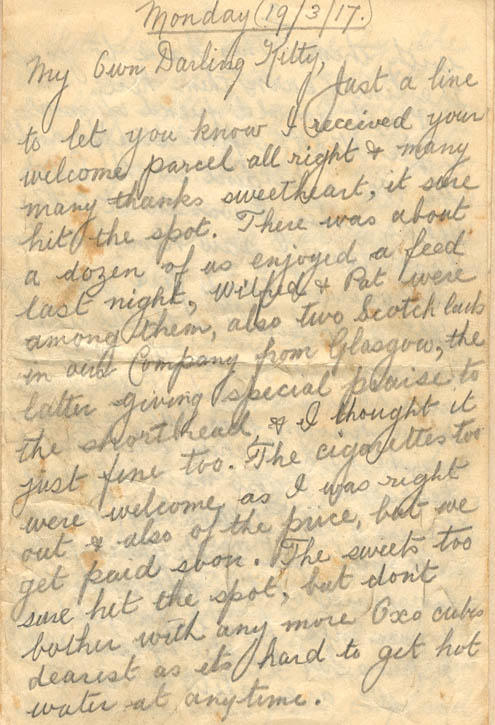 Monday (19/3/17.)
My Own Darling Kitty,
Just a line
to let you know I received your
welcome parcel all right & many
many thanks sweetheart, it sure
hit the spot. There was about
a dozen of us enjoyed a feed
last night, Wilfred & Pat were
among them, also two Scotch lads
in our Company from Glasgow, the
latter giving special praise to
the shortbread, & I thought it
just fine too. The cigarettes too
were welcome as I was right
out & also of the price, but we
get paid soon. The sweets too
sure hit the spot, but don't
bother with any more Oxo cubes
dearest as its hard to get hot
water at anytime.